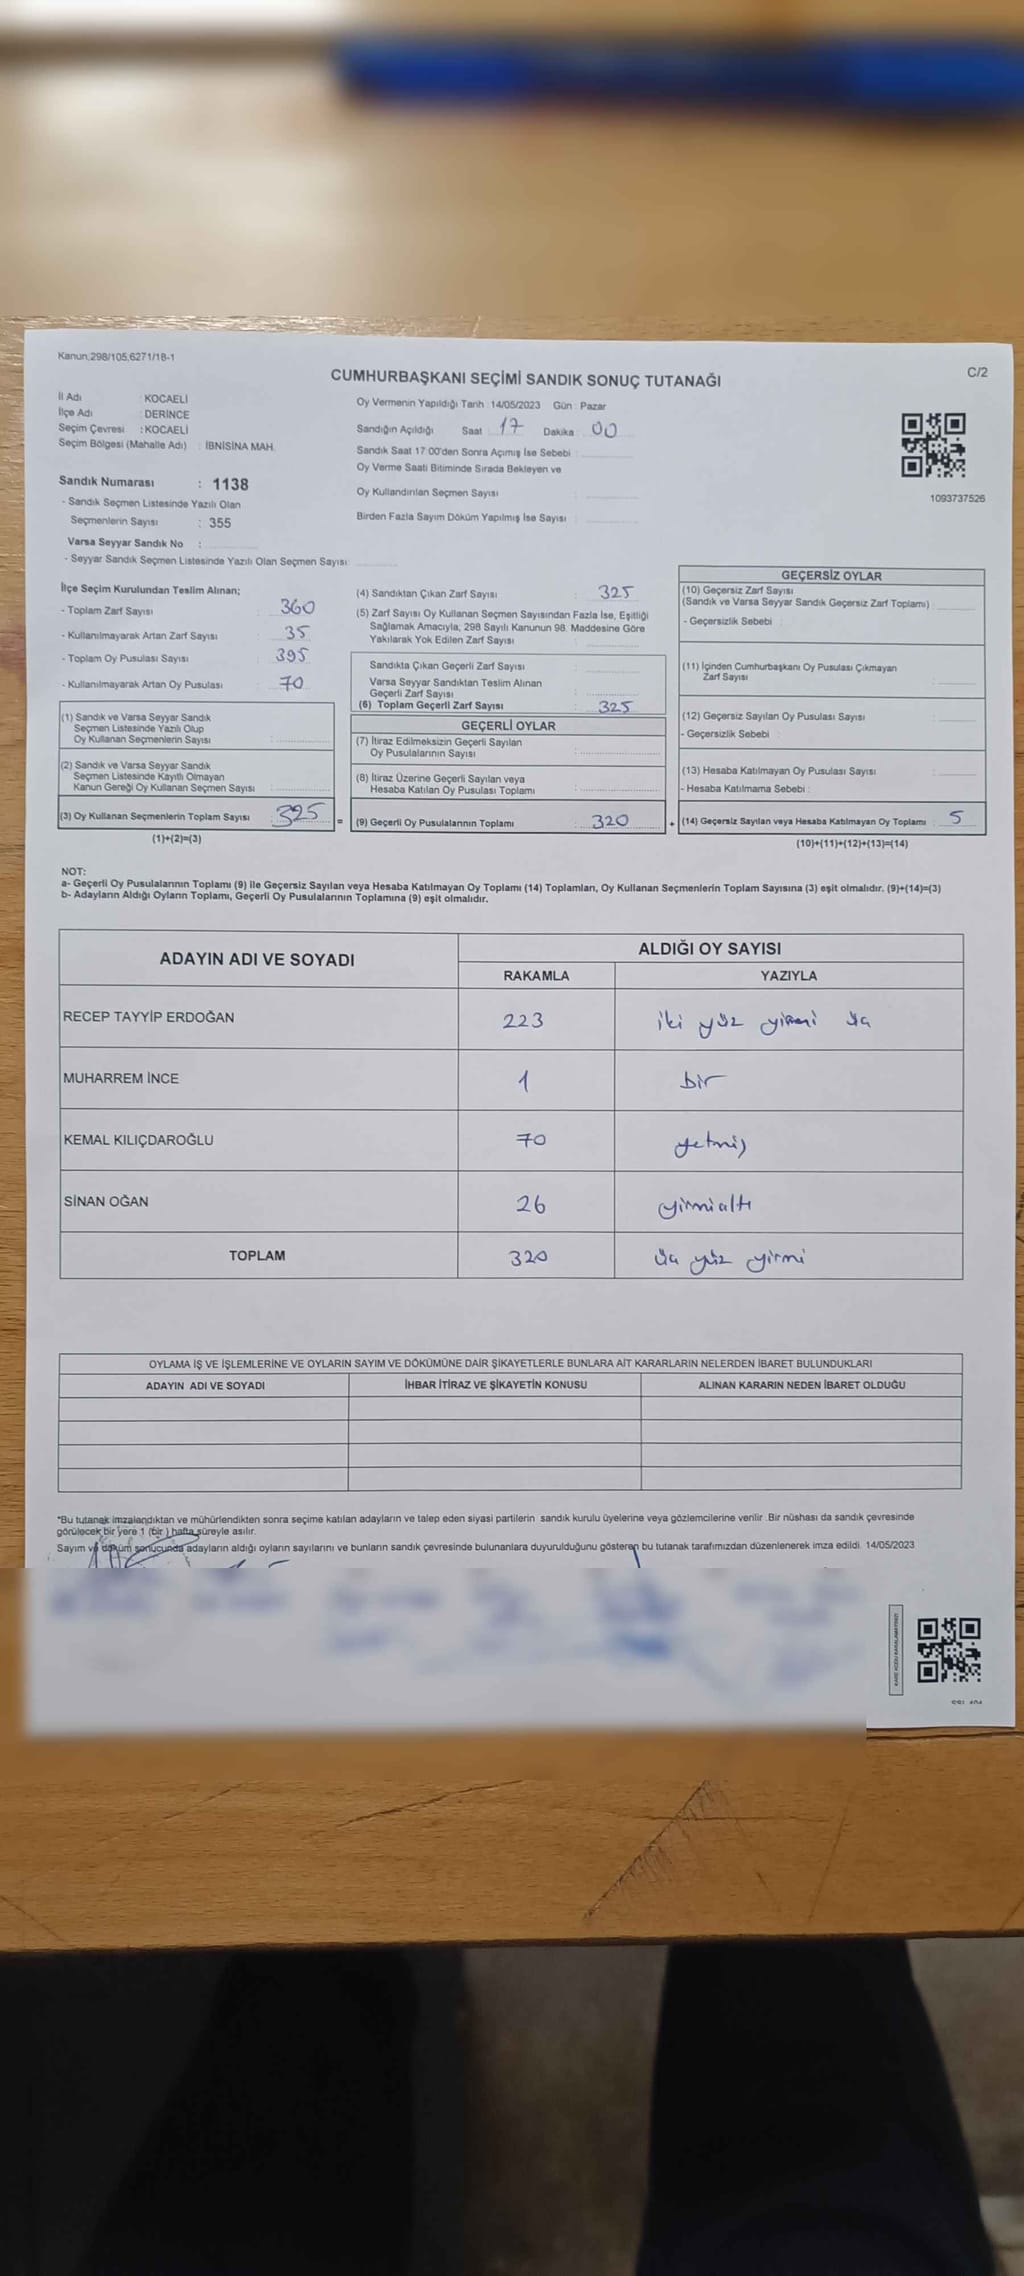 Kanun:298/105,6271/18-1
C/2
CUMHURBAŞKANI SEÇİMİ SANDIK SONUÇ TUTANAĞI
İl Adı : KOCAELİ
İlçe Adı : DERİNCE
Seçim Çevresi : KOCAELİ
Seçim Bölgesi (Mahalle Adı) : İBNİSİNA MAH.
Sandık Numarası : 1138
- Sandık Seçmen Listesinde Yazılı Olan
Seçmenlerin Sayısı : 355
Varsa Seyyar Sandık No :
- Seyyar Sandık Seçmen Listesinde Yazılı Olan Seçmen Sayısı
Oy Vermenin Yapıldığı Tarih : 14/05/2023 Gün : Pazar
Sandığın Açıldığı Saat 17 Dakika : 00
Sandık Saat 17:00'den Sonra Açımış İse Sebebi :
Oy Verme Saati Bitiminde Sırada Bekleyen ve
Oy Kullandırılan Seçmen Sayısı
Birden Fazla Sayım Döküm Yapılmış İse Sayısı
1093737526
İlçe Seçim Kurulundan Teslim Alınan;
- Toplam Zarf Sayısı : 360
- Kullanılmayarak Artan Zarf Sayısı : 35
- Toplam Oy Pusulası Sayısı : 395
- Kullanılmayarak Artan Oy Pusulası : 70
(1) Sandık ve Varsa Seyyar Sandık
Seçmen Listesinde Yazılı Olup
Oy Kullanan Seçmenlerin Sayısı :
(2) Sandık ve Varsa Seyyar Sandık
Seçmen Listesinde Kayıtlı Olmayan
Kanun Gereği Oy Kullanan Seçmen Sayısı :
(3) Oy Kullanan Seçmenlerin Toplam Sayısı : 325
(1)+(2)=(3)
(4) Sandıktan Çıkan Zarf Sayısı : 325
(5) Zarf Sayısı Oy Kullanan Seçmen Sayısından Fazla İse, Eşitliği
Sağlamak Amacıyla; 298 Sayılı Kanunun 98. Maddesine Göre
Yakılarak Yok Edilen Zarf Sayısı
Sandıkta Çıkan Geçerli Zarf Sayısı
Varsa Seyyar Sandıktan Teslim Alınan
Geçerli Zarf Sayısı
(6) Toplam Geçerli Zarf Sayısı : 325
GEÇERLİ OYLAR
(7) İtiraz Edilmeksizin Geçerli Sayılan
Oy Pusulalarının Sayısı
(8) İtiraz Üzerine Geçerli Sayılan veya
Hesaba Katılan Oy Pusulası Toplamı
= (9) Geçerli Oy Pusulalarının Toplamı : 320
GEÇERSİZ OYLAR
(10) Geçersiz Zarf Sayısı
(Sandık ve Varsa Seyyar Sandık Geçersiz Zarf Toplamı) :
- Geçersizlik Sebebi :
(11) İçinden Cumhurbaşkanı Oy Pusulası Çıkmayan
Zarf Sayısı
(12) Geçersiz Sayılan Oy Pusulası Sayısı
- Geçersizlik Sebebi :
(13) Hesaba Katılmayan Oy Pusulası Sayısı
- Hesaba Katılmama Sebebi :
+ (14) Geçersiz Sayılan veya Hesaba Katılmayan Oy Toplamı : 5
(10)+(11)+(12)+(13)=(14)
NOT:
a- Geçerli Oy Pusulalarının Toplamı (9) ile Geçersiz Sayılan veya Hesaba Katılmayan Oy Toplamı (14) Toplamları, Oy Kullanan Seçmenlerin Toplam Sayısına (3) eşit olmalıdır. (9)+(14)=(3)
b- Adayların Aldığı Oyların Toplamı, Geçerli Oy Pusulalarının Toplamına (9) eşit olmalıdır.
ADAYIN ADI VE SOYADI
ALDIĞI OY SAYISI
RAKAMLA YAZIYLA
RECEP TAYYİP ERDOĞAN 223 iki yüz yirmi üç
MUHARREM İNCE 1 bir
KEMAL KILIÇDAROĞLU 70 yetmiş
SİNAN OĞAN 26 yirmialtı
TOPLAM 320 üç yüz yirmi
OYLAMA İŞ VE İŞLEMLERİNE VE OYLARIN SAYIM VE DÖKÜMÜNE DAİR ŞİKAYETLERLE BUNLARA AİT KARARLARIN NELERDEN İBARET BULUNDUKLARI
ADAYIN ADI VE SOYADI İHBAR İTİRAZ VE ŞİKAYETİN KONUSU ALINAN KARARIN NEDEN İBARET OLDUĞU
*Bu tutanak imzalandıktan ve mühürlendikten sonra seçime katılan adayların ve talep eden siyasi partilerin sandık kurulu üyelerine veya gözlemcilerine verilir. Bir nüshası da sandık çevresinde
görülecek bir yere 1 (bir) hafta süreyle asılır.
Sayım ve döküm sonucunda adayların aldığı oyların sayılarını ve bunların sandık çevresinde bulunanlara duyurulduğunu gösteren bu tutanak tarafımızdan düzenlenerek imza edildi. 14/05/2023